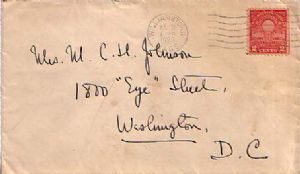 Mrs. M. C. H. Johnson
1800 "Eye" Street,
Washington,
D. C
2 CENTS 2